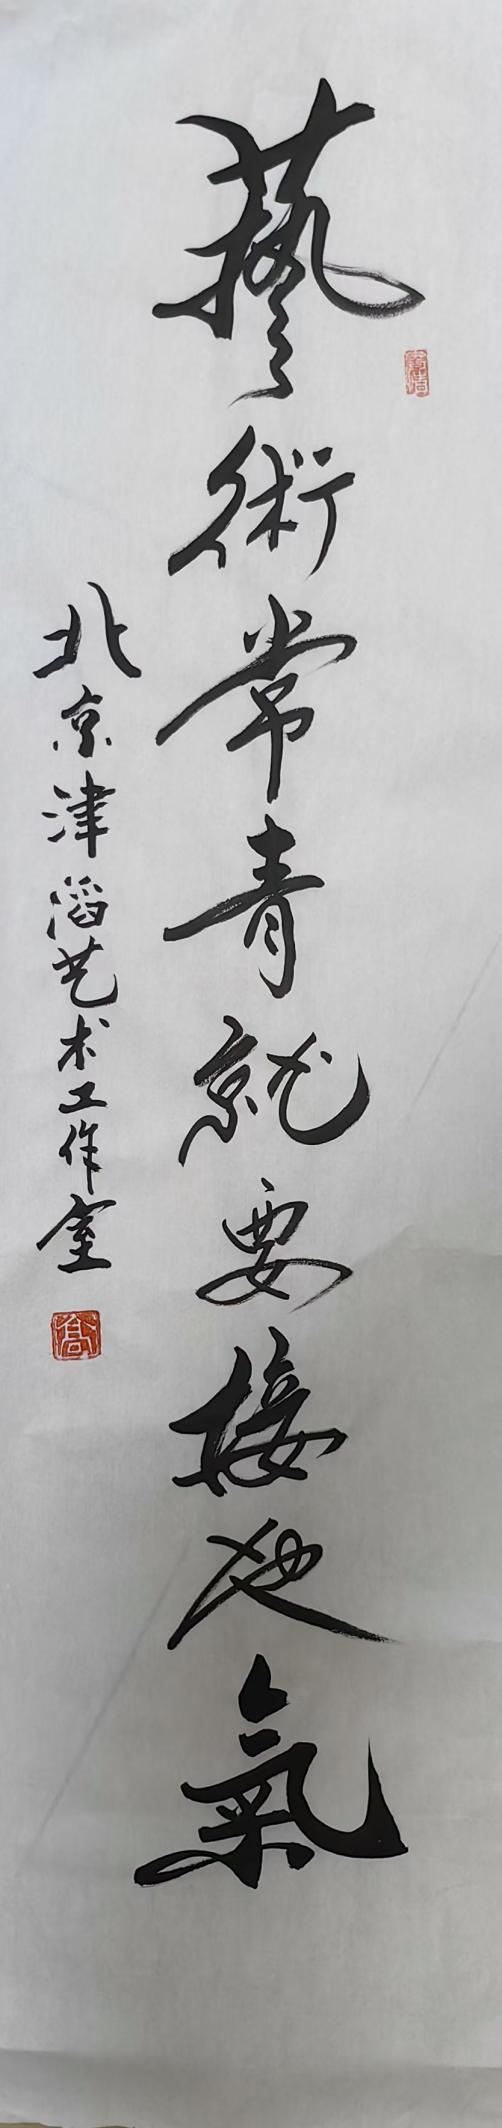 藝術常青就要接地氣
北京津滔艺术工作室